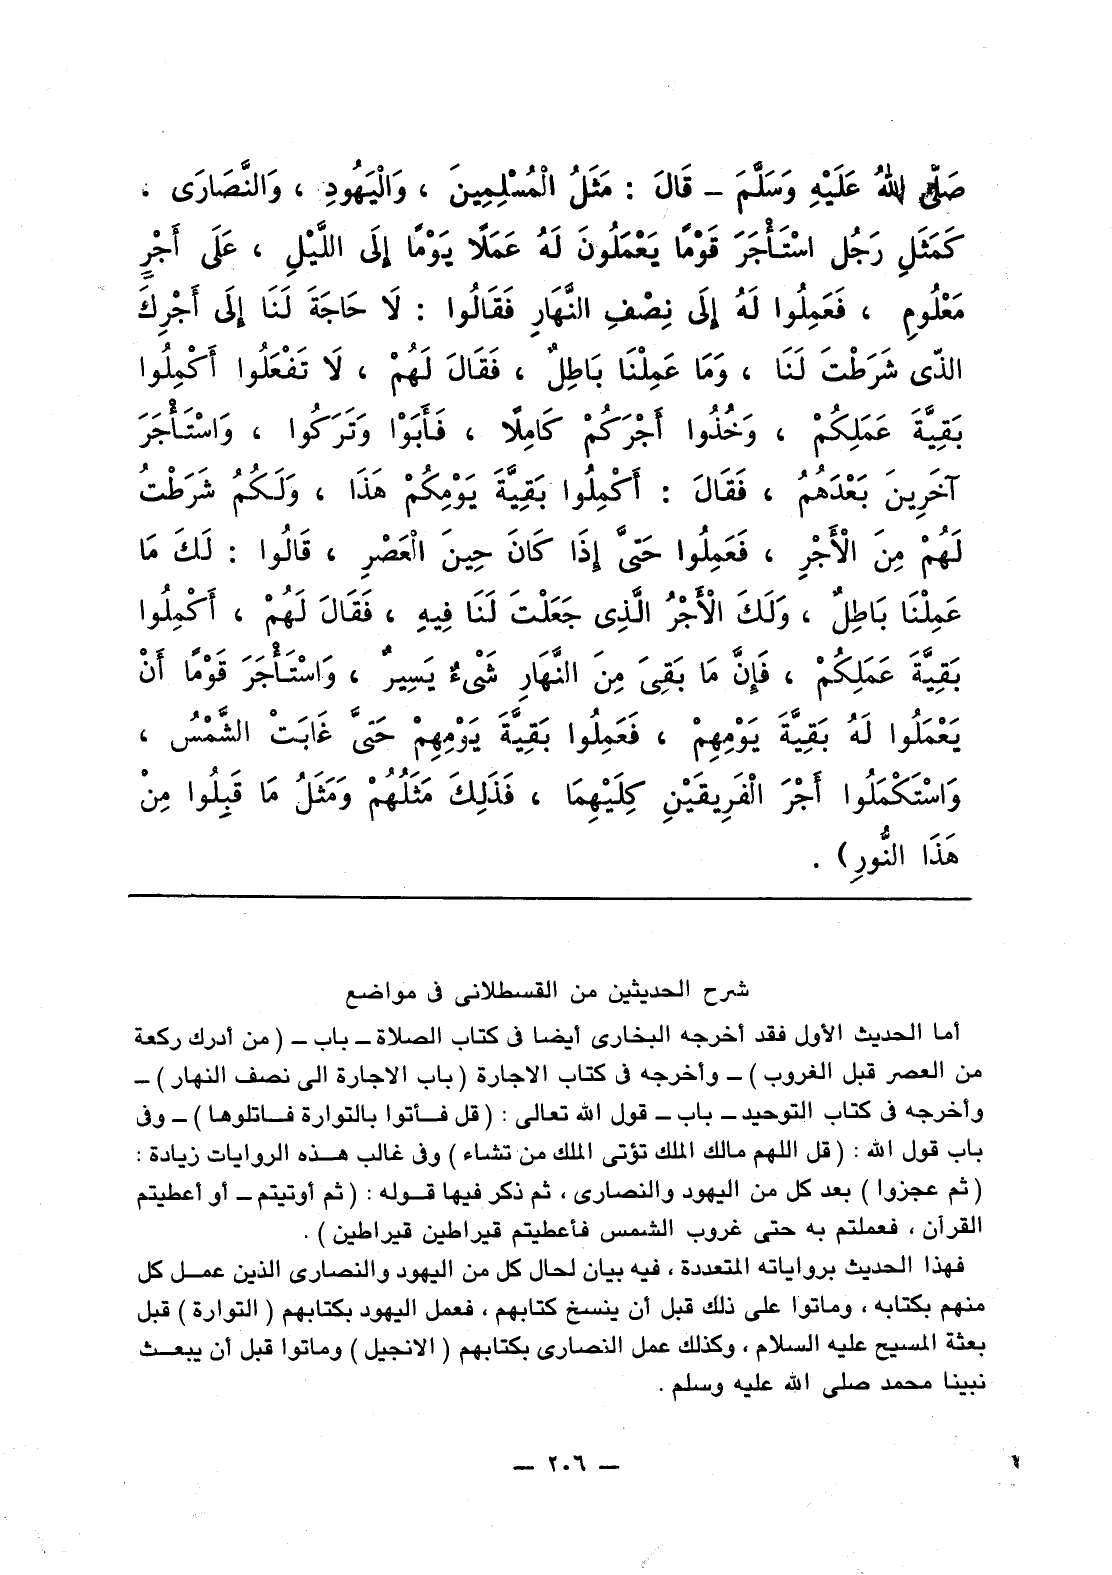 صَلَّى اللهُ عَلَيْهِ وَسَلَّمَ – قَالَ : مَثَلُ الْمُسْلِمِينَ ، وَالْيَهُودِ ، وَالنَّصَارَى .
كَمَثَلِ رَجُلٍ اسْتَأْجَرَ قَوْمًا يَعْمَلُونَ لَهُ عَمَلًا يَوْمًا إِلَى اللَّيْلِ ، عَلَى أَجْرٍ
مَعْلُومٍ ، فَعَمِلُوا لَهُ إِلَى نِصْفِ النَّهَارِ فَقَالُوا : لَا حَاجَةَ لَنَا إِلَى أَجْرِكَ
الَّذِى شَرَطْتَ لَنَا ، وَمَا عَمِلْنَا بَاطِلٌ ، فَقَالَ لَهُمْ ، لَا تَفْعَلُوا أَكْمِلُوا
بَقِيَّةَ عَمَلِكُمْ ، وَخُذُوا أَجْرَكُمْ كَامِلًا ، فَأَبَوْا وَتَرَكُوا ، وَاسْتَأْجَرَ
آخَرِينَ بَعْدَهُمْ ، فَقَالَ : أَكْمِلُوا بَقِيَّةَ يَوْمِكُمْ هَذَا ، وَلَكُمْ شَرَطْتُ
لَهُمْ مِنَ الْأَجْرِ ، فَعَمِلُوا حَتَّى إِذَا كَانَ حِينَ الْعَصْرِ ، قَالُوا : لَكَ مَا
عَمِلْنَا بَاطِلٌ ، وَلَكَ الْأَجْرُ الَّذِى جَعَلْتَ لَنَا فِيهِ ، فَقَالَ لَهُمْ ، أَكْمِلُوا
بَقِيَّةَ عَمَلِكُمْ ، فَإِنَّ مَا بَقِىَ مِنَ النَّهَارِ شَىْءٌ يَسِيرٌ ، وَاسْتَأْجَرَ قَوْمًا أَنْ
يَعْمَلُوا لَهُ بَقِيَّةَ يَوْمِهِمْ ، فَعَمِلُوا بَقِيَّةَ يَوْمِهِمْ حَتَّى غَابَتْ الشَّمْسُ ،
وَاسْتَكْمَلُوا أَجْرَ الْفَرِيقَيْنِ كِلَيْهِمَا ، فَذَلِكَ مَثَلُهُمْ وَمَثَلُ مَا قَبِلُوا مِنْ
هَذَا النُّورِ) .
شرح الحديثين من القسطلانى فى مواضع
أما الحديث الأول فقد أخرجه البخارى أيضا فى كتاب الصلاة – باب – (من أدرك ركعة
من العصر قبل الغروب) – وأخرجه فى كتاب الاجارة (باب الاجارة الى نصف النهار) –
وأخرجه فى كتاب التوحيد – باب – قول الله تعالى : (قل فأتوا بالتوارة فاتلوها) – وفى
باب قول الله : (قل اللهم مالك الملك تؤتى الملك من تشاء) وفى غالب هذه الروايات زيادة :
(ثم عجزوا) بعد كل من اليهود والنصارى ، ثم ذكر فيها قوله : (ثم أوتيتم – أو أعطيتم
القرآن ، فعملتم به حتى غروب الشمس فأعطيتم قيراطين قيراطين) .
فهذا الحديث برواياته المتعددة ، فيه بيان لحال كل من اليهود والنصارى الذين عمل كل
منهم بكتابه ، وماتوا على ذلك قبل أن ينسخ كتابهم ، فعمل اليهود بكتابهم (التوارة) قبل
بعثة المسيح عليه السلام ، وكذلك عمل النصارى بكتابهم (الانجيل) وماتوا قبل أن يبعث
نبينا محمد صلى الله عليه وسلم .
– ٢٠٦ –